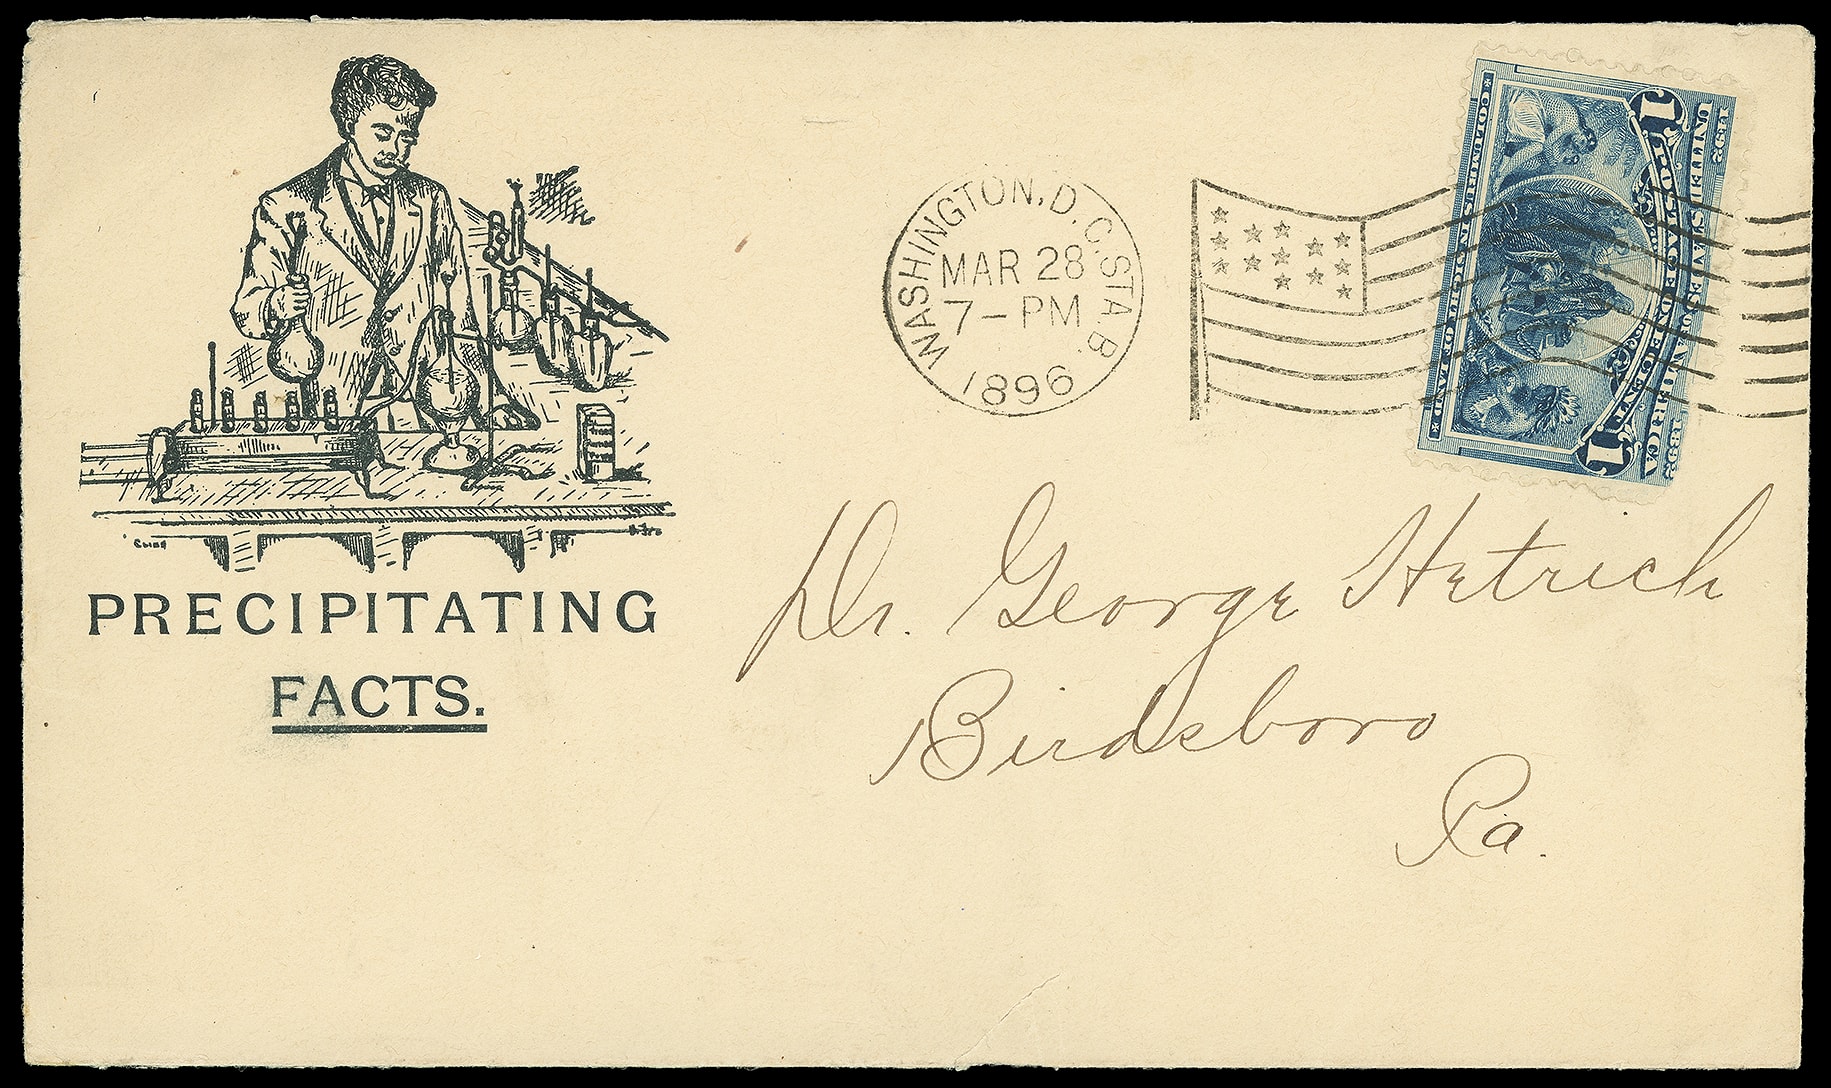 PRECIPITATING
FACTS.
WASHINGTON, D. C. STA B.
MAR 28
7-PM
1896
1892 1892
UNITED STATES OF AMERICA
1 POSTAGE ONE CENT 1
COLUMBUS IN SIGHT OF LAND
Dr. George Hetrich
Birdsboro
Pa.